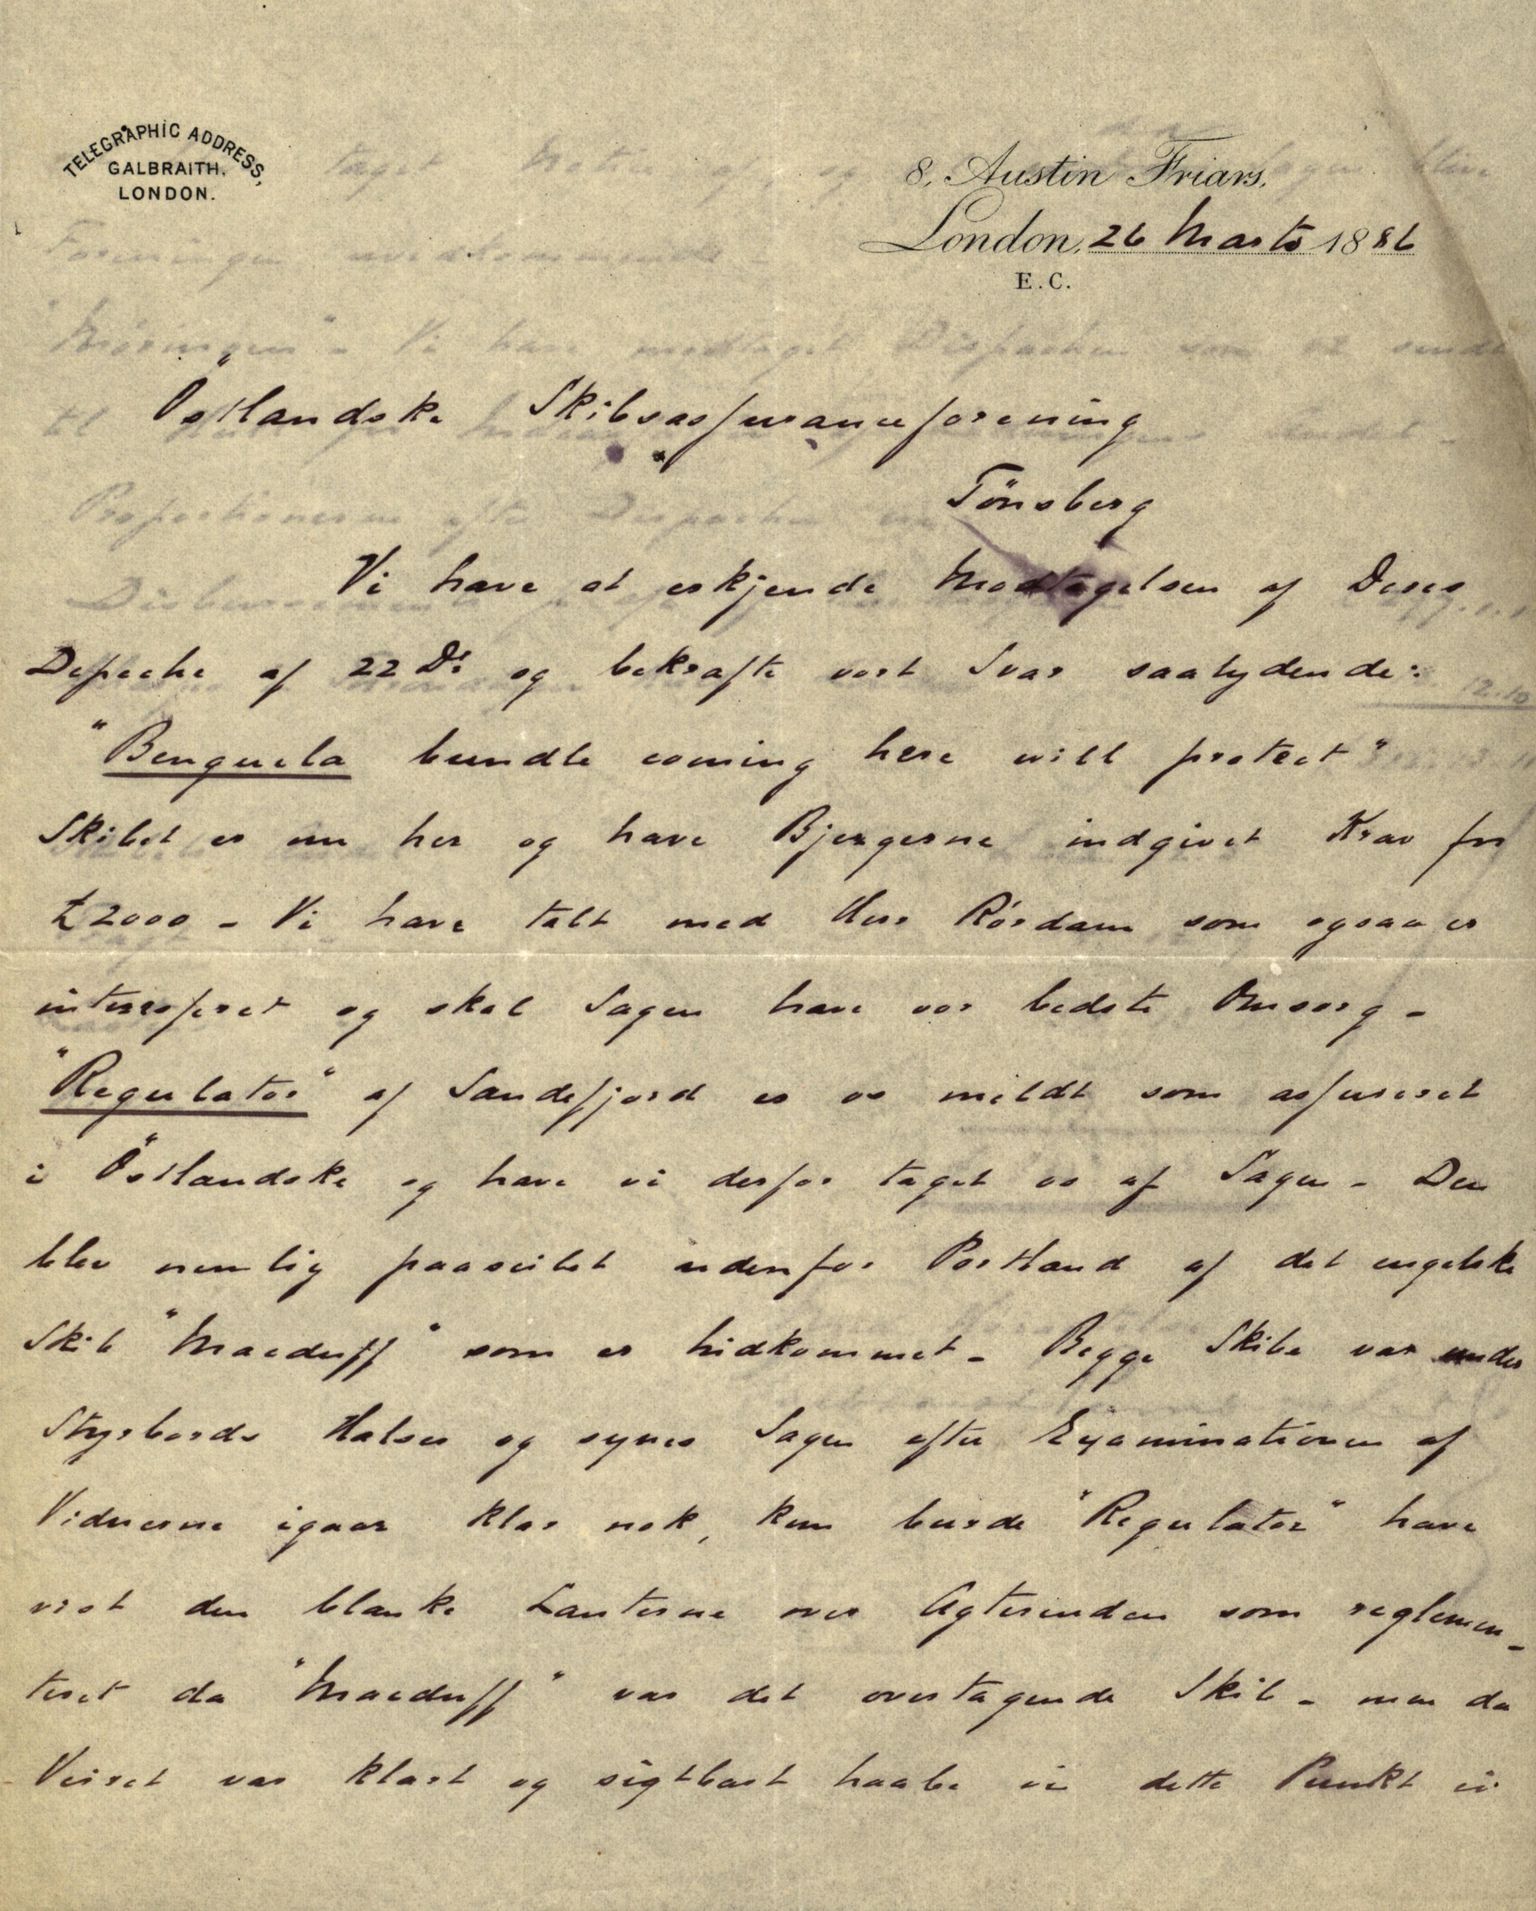 TELEGRAPHIC ADDRESS,
GALBRAITH,
LONDON.
8, Austin Friars,
London, 26 Marts 1886
E.C.
Östlandske Skibsassuranceforening
Tönsberg
Vi have at erkjende Modtagelsen af Deres
Depeche af 22 Ds og bekræfte vort Svar saalydende:
"Benguela bundle coming here will protect"
Skibet er nu her og have Bjergerne indgivet Krav for
£2000 - Vi have talt med Herr Rördam som ogsaa er
interesseret og skal Sagen have vor bedste Omsorg -
"Regulator" af Sandefjord er os meldt som assureret
i Östlandske og have vi derfor taget os af Sagen - Den
blev nemlig paaseilet udenfor Portland af det engelske
Skib "Macduff" som er hidkommet - Begge Skibe var under
Styrbords Halser og synes Sagen efter Examinationen af
Vidnerne igaar klar nok, kun burde "Regulator" have
vist den blanke Lanterne over Agterenden som reglemen-
teret da "Macduff" var det overtagende Skib - men da
Veiret var klart og sigtbart haabe vi dette Punkt ei